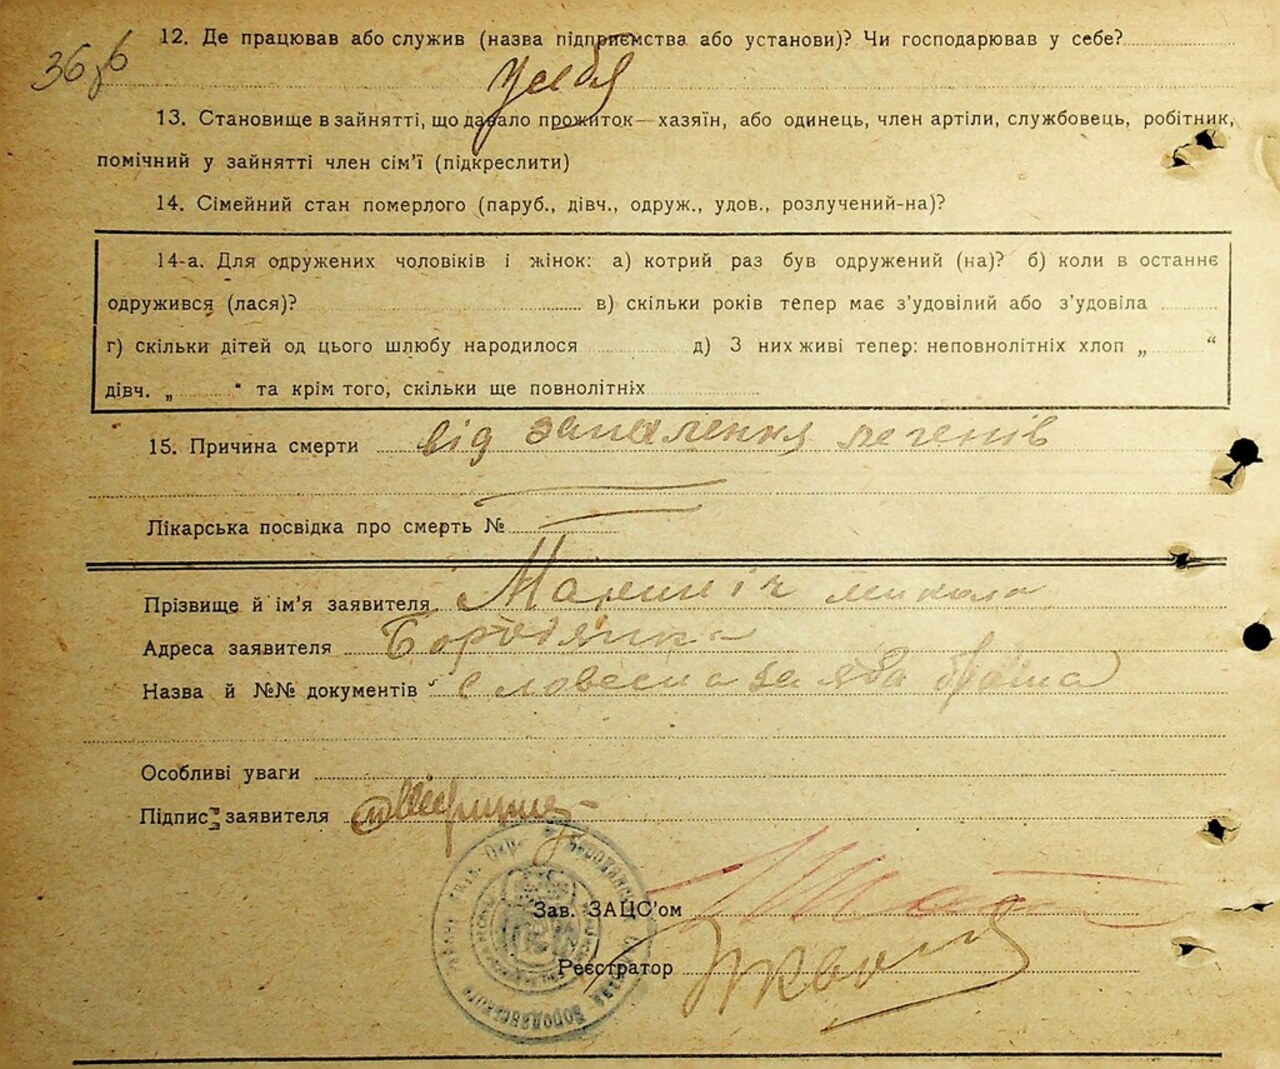 12. Де працював або служив (назва підприємства або установи)? Чи господарював у себе?
у себя
13. Становище в зайнятті, що давало прожиток — хазяїн, або одинець, член артіли, службовець, робітник,
помічний у зайнятті член сім'ї (підкреслити)
14. Сімейний стан померлого (паруб., дівч., одруж., удов., розлучений-на)?
14-а. Для одружених чоловіків і жінок: а) котрий раз був одружений (на)? б) коли в останнє
одружився (лася)? в) скільки років тепер має з'удовілий або з'удовіла
г) скільки дітей од цього шлюбу народилося д) З них живі тепер: неповнолітніх хлоп „ “
дівч. „ “ та крім того, скільки ще повнолітніх
15. Причина смерти від запалення легенів
Лікарська посвідка про смерть №
Прізвище й ім'я заявителя микола
Адреса заявителя Бородянка
Назва й №№ документів словесна заява
Особливі уваги
Підпис заявителя
Зав. ЗАЦС'ом
Реєстратор